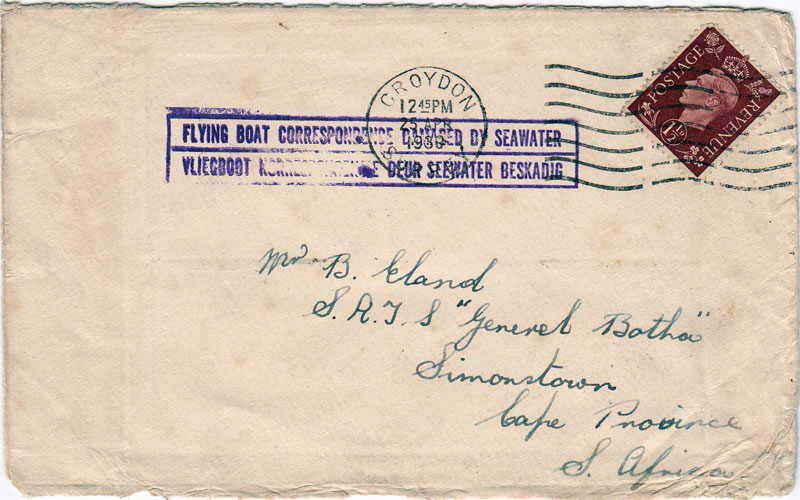 CROYDON
12 45PM
25 APR
POSTAGE
REVENUE
1½D
FLYING BOAT CORRESPONDENCE DAMAGED BY SEAWATER
VLIEGBOOT KORRESPONDENSIE DEUR SEEWATER BESKADIG
Mr B. Eland
S.A.T.S "Generel Botha"
Simonstown
Cape Province
S. Africa